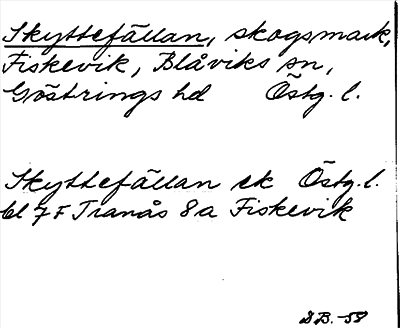 Skyttefällan, skogsmark,
Fiskevik, Blåviks sn,
Göstrings hd Östg. l.
Skyttefällan ek Östg. l.
bl 7 F Tranås 8a Fiskevik
D B. -58